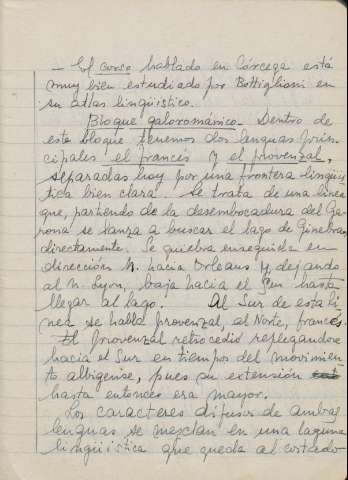 - El corso hablado en Córcega está
muy bien estudiado por Bottiglioni en
su atlas lingüístico.
Bloque galorománico. Dentro de
este bloque tenemos dos lenguas prin-
cipales el francés y el provenzal,
separadas hoy por una frontera lingüís-
tica bien clara. Se trata de una línea
que, partiendo de la desembocadura del Ga-
rona se lanza a buscar el lago de Ginebra
directamente. Se quiebra enseguida en
dirección N. hacia Orleans y, dejando
al N. Lyon, baja hacia el Sur hasta
llegar al lago. Al Sur de esta lí-
nea se habla provenzal, al Norte, francés.
El provenzal retrocedió replegandose
hacia el Sur en tiempos del movimien-
to albigense, pues su extensión
hasta entonces era mayor.
Los caracteres difusos de ambas
lenguas se mezclan en una laguna
lingüística que queda al costado